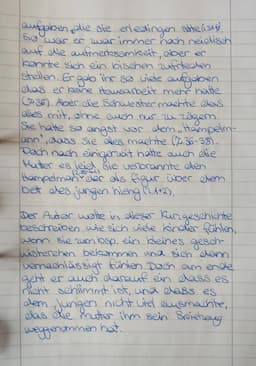 aufgaben, die sie erledingen sollte
So war er zwar immer noch neidisch
auf die aufmerksamkeit, aber er
konnte sich ein bischen zufrieden
stellen. Er gab ihr so viele aufgaben
das er keine Hausarbeit mehr hatte
(Z.35). Aber die Schwester machte das
alles mit, ohne auch nur zu zögern.
Sie hatte so angst vor dem „Hampelm-
ann", dass sie alles machte (Z.36-38).
Doch nach einger Zeit hatte auch die
Mutter es leid. Sie verbrannte den
Hampelmann der als figur über dem
bet des jungen hieng
Der Autor wollte in dieser Kurzgeschichte
beschreiben wie sich viele Kinder fühlen,
wenn sie zum bsp. ein kleines gesch-
wisterchen bekommen und sich dann
vernachlässigt fühlen. Doch am ende
geht er auch darauf ein dass es
nicht schlimmt ist, und dass es
dem Jungen nicht viel ausmachte,
das die mutter ihm sein
weggenommen hat.